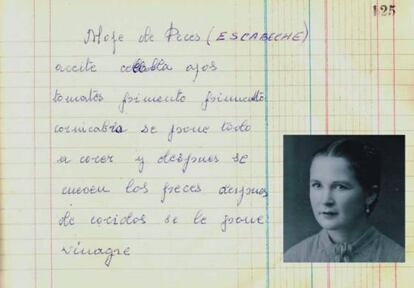 125
Moje de Peces (ESCABECHE)
aceite ajos
tomates pimento
cornicabra se pone todo
a cocer y despues se
cuecen los peces despues
de cocidos se le pone
vinagre